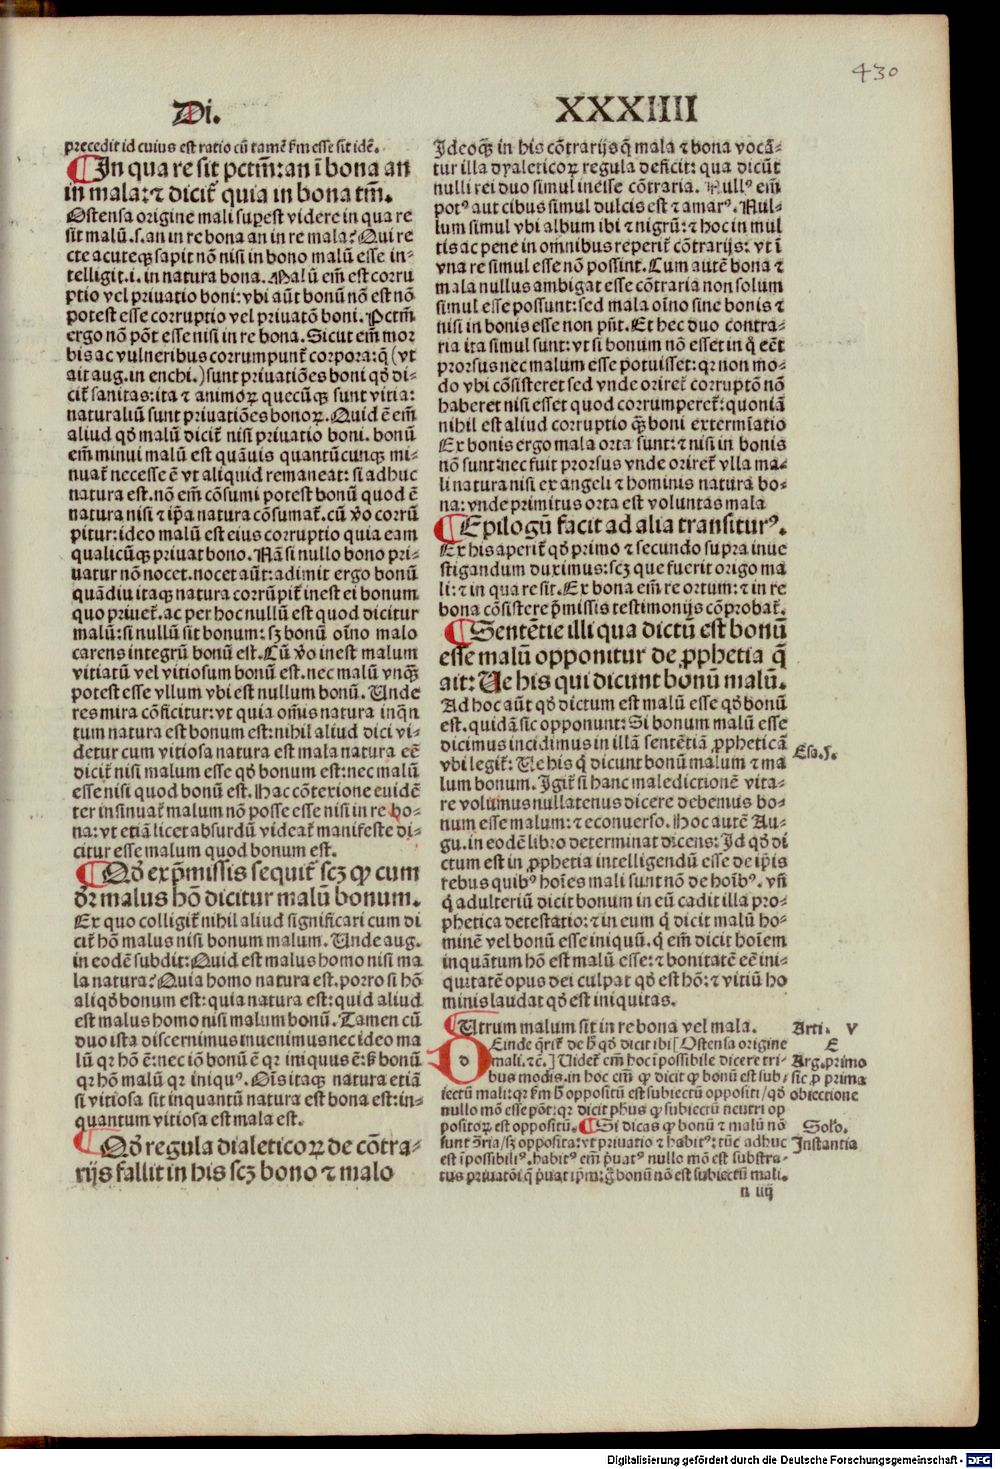 430
Di.
XXXIIII
precedit id cuius est ratio cū tamē km esse sit idē.
¶ In qua re sit pctm̄: an ī bona an
in mala: ⁊ dicit̄ quia in bona tm̄.
Ostensa origine mali superest videre in qua re
sit malū .s. an in re bona an in re mala? Qui re
cte acuteqꝫ sapit nō nisi in bono malū esse in-
telligit .i. in natura bona. Malū em̄ est corru
ptio vel priuatio boni: vbi aūt bonū nō est nō
potest esse corruptio vel priuatō boni. Pctm̄
ergo nō pōt esse nisi in re bona. Sicut em̄ mor
bis ac vulneribus corrumpunt̄ corpora: q̄ (vt
ait aug. in enchi.) sunt priuatiōes boni qđ di-
cit̄ sanitas: ita ⁊ animoꝝ quecūqꝫ sunt vitia:
naturaliū sunt priuatiōes bonoꝝ. Quid ē em̄
aliud qđ malū dicit̄ nisi priuatio boni. bonū
em̄ minui malū est quāuis quantūcunqꝫ mi-
nuat̄ necesse ē vt aliquid remaneat: si adhuc
natura est. nō em̄ cōsumi potest bonū quod ē
natura nisi ⁊ ip̄a natura cōsumat̄. cū v̄o corrū
pitur: ideo malū est eius corruptio quia eam
qualicūqꝫ priuat bono. Nā si nullo bono pri-
uatur nō nocet. nocet aūt: adimit ergo bonū
quādiu itaqꝫ natura corrūpit̄ inest ei bonum
quo priuet̄. ac per hoc nullū est quod dicitur
malū: si nullū sit bonum: sꝫ bonū oīno malo
carens integrū bonū est. Cū v̄o inest malum
vitiatū vel vitiosum bonū est. nec malū vnqꝫ
potest esse vllum vbi est nullum bonū. Unde
res mira cōficitur: vt quia om̄is natura inq̄n
tum natura est bonum est: nihil aliud dici vi-
detur cum vitiosa natura est mala natura eē
dicit̄ nisi malum esse qđ bonum est: nec malū
esse nisi quod bonū est. Hac cōtexione euidē
ter insinuat̄ malum nō posse esse nisi in re bo-
na: vt etiā licet absurdū videat̄ manifeste di-
citur esse malum quod bonum est.
¶ Qđ ex p̄missis sequit̄ scꝫ ꝙ cum
dr̄ malus hō dicitur malū bonum.
Ex quo colligit̄ nihil aliud significari cum di
cit̄ hō malus nisi bonum malum. Unde aug.
in eodē subdit: Quid est malus homo nisi ma
la natura? Quia homo natura est. porro si hō
aliqđ bonum est: quia natura est: quid aliud
est malus homo nisi malum bonū. Tamen cū
duo ista discernimus inuenimus nec ideo ma
lū qꝛ hō ē: nec iō bonū ē qꝛ iniquus ē: ꝫ bonū
qꝛ hō malū qꝛ iniquꝰ. Oīs itaqꝫ natura etiā
si vitiosa sit inquantū natura est bona est: in-
quantum vitiosa est mala est.
¶ Qđ regula dialeticoꝝ de cōtra-
rijs fallit in his scꝫ bono ⁊ malo
Ideoqꝫ in his cōtrarijs q̄ mala ⁊ bona vocā-
tur illa dyaleticoꝝ regula deficit: qua dicūt
nulli rei duo simul inesse cōtraria. Nullꝰ em̄
potꝰ aut cibus simul dulcis est ⁊ amarꝰ. Nul-
lum simul vbi album ibi ⁊ nigrū: ⁊ hoc in mul
tis ac pene in omnibus reperit̄ cōtrarijs: vt ī
vna re simul esse nō possint. Cum autē bona ⁊
mala nullus ambigat esse cōtraria non solum
simul esse possunt: sed mala oīno sine bonis ⁊
nisi in bonis esse non pn̄t. Et hec duo contra-
ria ita simul sunt: vt si bonum nō esset in q̄ eēt
prorsus nec malum esse potuisset: qꝛ non mo-
do vbi cōsisteret sed vnde oriret̄ corruptō nō
haberet nisi esset quod corrumperet̄: quoniā
nihil est aliud corruptio qꝫ boni extermīatio
Ex bonis ergo mala orta sunt: ⁊ nisi in bonis
nō sunt: nec fuit prorsus vnde oriret̄ vlla ma-
li natura nisi ex angeli ⁊ hominis natura bo-
na: vnde primitus orta est voluntas mala
¶ Epilogū facit ad alia transiturꝰ.
Ex his aperit̄ qđ primo ⁊ secundo supra inue
stigandum duximus: scꝫ que fuerit origo ma
li: ⁊ in qua re sit. Ex bona em̄ re ortum: ⁊ in re
bona cōsistere p̄missis testimonijs cōprobat̄.
¶ Sentētie illi qua dictū est bonū
esse malū opponitur de ꝓphetia q̄
ait: Ue his qui dicunt bonū malū.
Ad hoc aūt qđ dictum est malū esse qđ bonū
est. quidā sic opponunt: Si bonum malū esse
dicimus incidimus in illā sentētiā ꝓpheticā
vbi legit̄: Ue his q̄ dicunt bonū malum ⁊ ma
lum bonum. Igit̄ si hanc maledictionē vita-
re volumus nullatenus dicere debemus bo-
num esse malum: ⁊ econuerso. Hoc autē Au-
gu. in eodē libro determinat dicens: Id qđ di
ctum est in ꝓphetia intelligendū esse de ip̄is
rebus quibꝰ hoīes mali sunt nō de hoībꝰ. vn̄
q̄ adulteriū dicit bonum in eū cadit illa pro-
phetica detestatio: ⁊ in eum q̄ dicit malū ho-
minē vel bonū esse iniquū. q̄ em̄ dicit hoīem
inquātum hō est malū esse: ⁊ bonitatē eē ini-
quitatē opus dei culpat qđ est hō: ⁊ vitiū ho
minis laudat qđ est iniquitas.
¶ Utrum malum sit in re bona vel mala.
DEinde q̄rit̄ de h̄ qđ dicit ibi [Ostensa origine
mali. ⁊c̄.] Uidet̄ em̄ hoc īpossibile dicere tri-
bus modis. in hoc em̄ ꝙ dicit ꝙ bonū est sub-
iectū mali: qꝛ km h̄ oppositū est subiectū oppositi / qđ
nullo mō esse pōt: qꝛ dicit ph̄us ꝙ subiectū neutri op
positoꝝ est oppositū. ¶ Si dicas ꝙ bonū ⁊ malū nō
sunt ɔ̄ria / sꝫ opposita: vt priuatio ⁊ habitꝰ: tūc adhuc
est īpossibiliꝰ. habitꝰ em̄ p̄uatꝰ nullo mō est substra-
tus priuatōi q̄ p̄uat ip̄m: g̊ bonū nō est subiectū mali.
n iiij
Esa. 5.
Arti. V
E
Arg. primo
sic ꝓ prima
obiectione
Solo.
Instantia
Digitalisierung gefördert durch die Deutsche Forschungsgemeinschaft - DFG